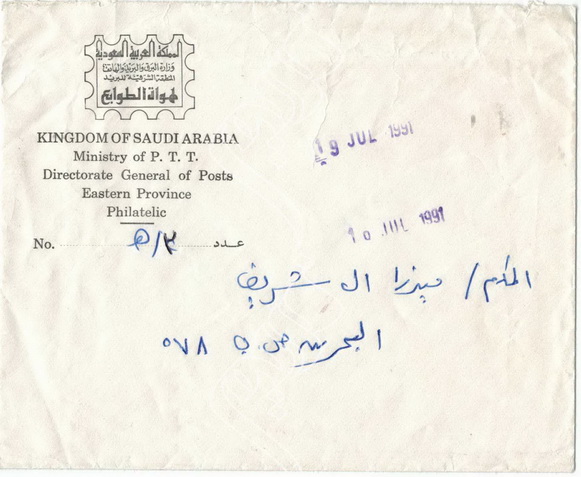 المملكة العربية السعودية
وزارة البرق والبريد والهاتف
المنطقة الشرقية للبريد
هواة الطوابع
KINGDOM OF SAUDI ARABIA
Ministry of P. T. T.
Directorate General of Posts
Eastern Province
Philatelic
No. ه/٢ عدد
9 JUL 1991
10 JUL 1991
المكرم / ميرزا ال شريف
البحرين ص. ب ٥٧٨